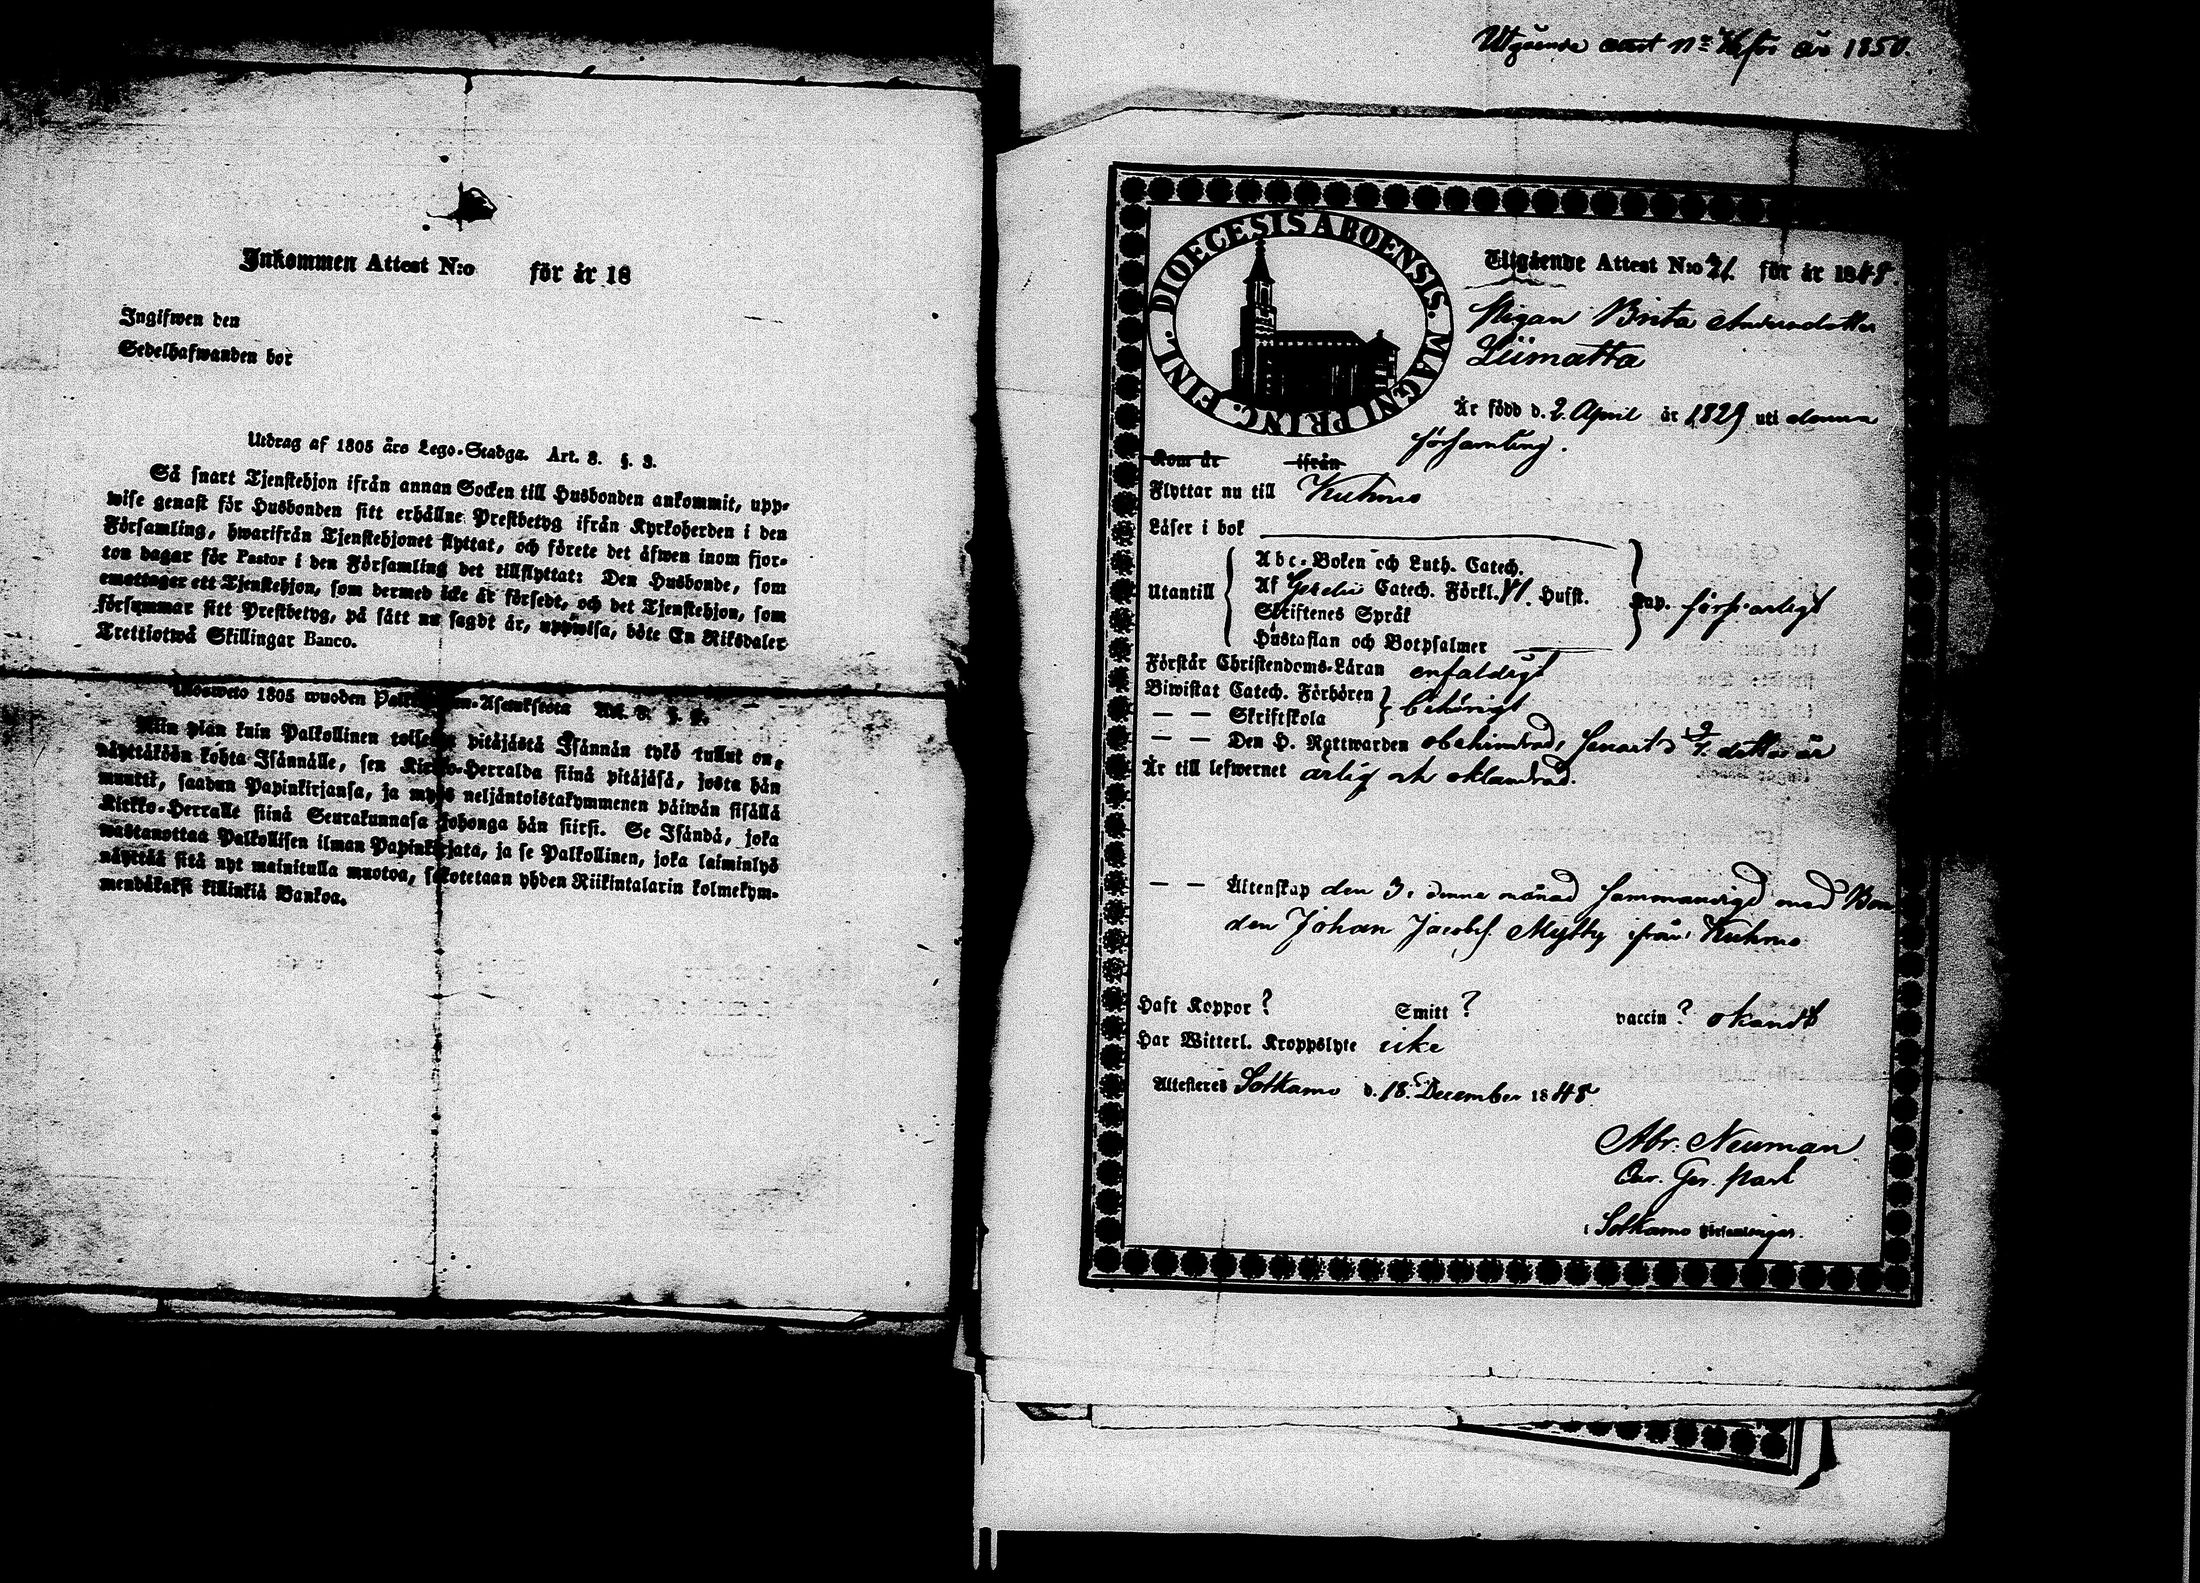 Inkommen Attest N:o för år 18
Ingifwen den
Sedelhafwanden bor
Utdrag af 1805 års Lego-Stadga. Art. 8. §. 3.
Så snart Tjenstehjon ifrån annan Socken till Husbonden ankommit, upp-
wise genast för Husbonden sitt erhållne Prestbetyg ifrån Kyrkoherden i den
Församling, hwarifrån Tjenstehjonet flyttat, och förete det äfwen inom fjor-
ton dagar för Pastor i den Församling det tillflyttat: Den Husbonde, som
emottager ett Tjenstehjon, som dermed icke är försedt, och det Tjenstehjon, som
försummar sitt Prestbetyg, på sätt nu sagdt är, uppwisa, böte En Riksdaler
Trettiotwå Skillingar Banco.
1805 wuoden
Niin pian kuin Palkollinen toisesta pitäjästä Isännän tykö tullut on,
näyttäköön kohta Isännälle, sen Kirkko-Herralda siinä pitäjäsä, josta hän
muutti, saadun Papinkirjansa, ja myös neljäntoistakymmenen päiwän sisällä
Kirkko-Herralle siinä Seurakunnasa johonga hän siirsi. Se Isändä, joka
wastanottaa Palkollisen ilman Papinkirjata, ja se Palkollinen, joka laiminlyö
näyttää sitä nyt mainitulla muotoa, sakotetaan yhden Riikintalarin kolmekym-
mendäkaksi killinkiä Bankoa.
Utgående attest n:o för år 1850.
DIOECESIS ABOENSIS. MAGNI PRINC. FINL.
Utgående Attest N:o 21. för år 1848.
Pigan Brita Andersdotter
Liimatta
Är född d. 2. April år 1829 uti denna
församling.
Kom år ifrån
Flyttar nu till Kuhmo
Läser i bok
Abc-Boken och Luth. Catech.
Utantill Af Gezelii Catech. Förkl. Husst. försvarligt
Skriftenes Språk
Hustaflan och Botpsalmer
Förstår Christendoms-Läran enfaldigt
Biwistat Catech. Förhören behörigt
— — Skriftskola
— — Den H. Nattwarden obehindrad, senast detta år
Är till lefwernet ärlig och oklandrad.
— — Äktenskap den 3. denne månad sammanvigd med Bon
den Johan Jacobs. Mytty ifrån Kuhmo
Haft Koppor ? Smitt ? vaccin ? okändt
Har Witterl. Kroppslyte icke
Attesteres Sotkamo d. 18. December 1848.
Abr. Neuman
i Sotkamo Församlingar.